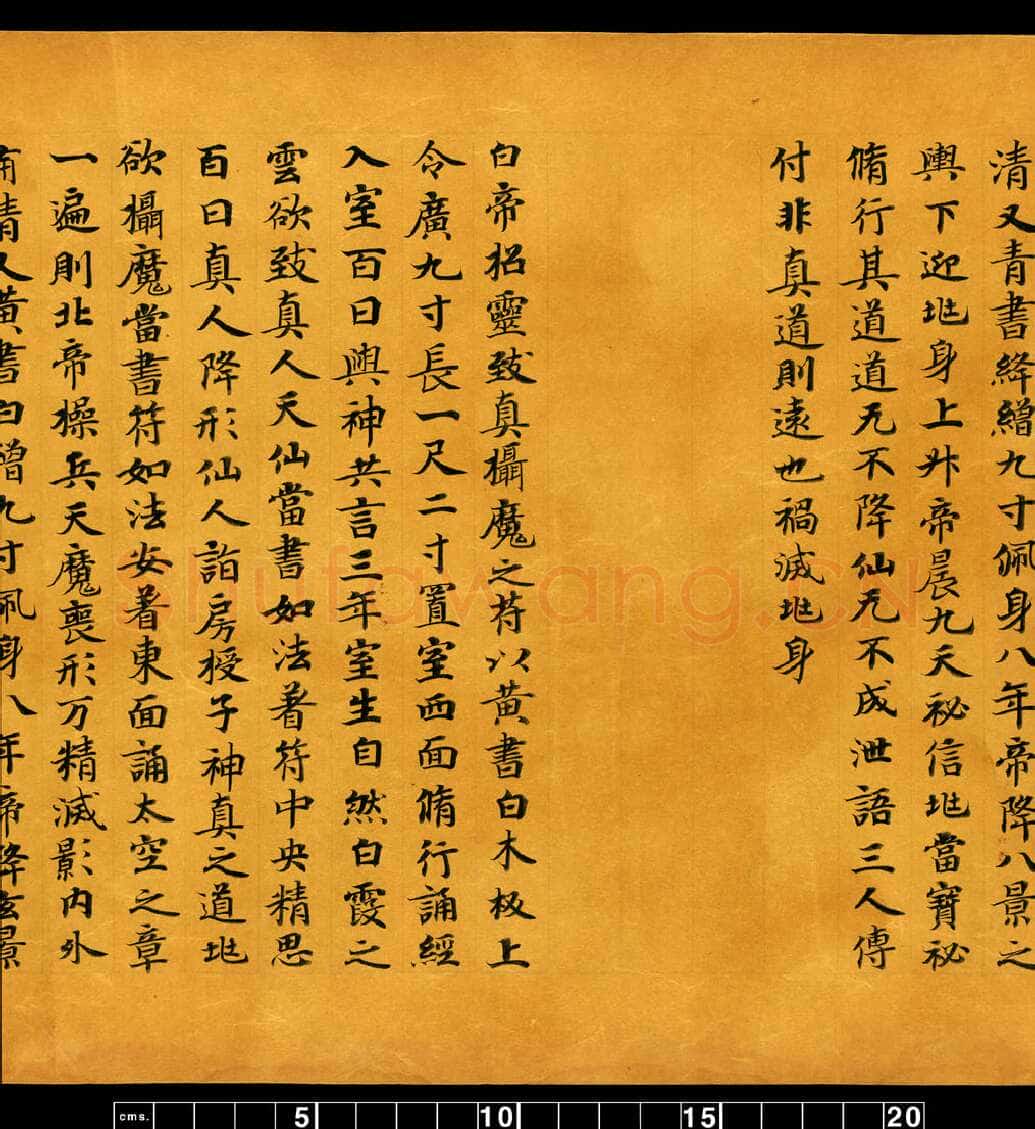 清又青書絳繒九寸佩身八年帝降八景之
輿下迎𡉵身上升帝晨九天祕信𡉵當寶祕
脩行其道道无不降仙无不成泄語三人傳
付非真道則遠也禍滅𡉵身
白帝招靈致真攝魔之符以黃書白木板上
令廣九寸長一尺二寸置室西面脩行誦經
入室百日與神共言三年室生自然白霞之
雲欲致真人天仙當書如法著符中央精思
百日真人降形仙人詣房授子神真之道𡉵
欲攝魔當書符如法安著東面誦太空之章
一遍則北帝操兵天魔喪形万精滅影內外
清又黃書白繒九寸佩身八年帝降玄景
shufawang.CN
cms. 5 10 15 20